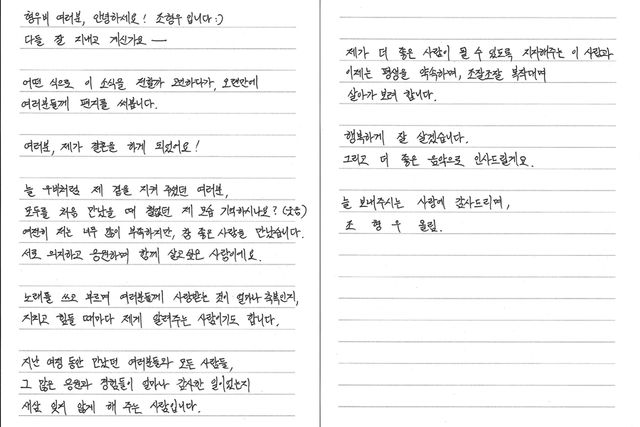 형우비 여러분, 안녕하세요! 조형우 입니다 :)
다들 잘 지내고 계신가요 —
어떤 식으로 이 소식을 전할까 고민하다가, 오랜만에
여러분들께 편지를 써봅니다.
여러분, 제가 결혼을 하게 되었어요!
늘 우비처럼 제 곁을 지켜 주셨던 여러분,
모두를 처음 만났을 때 철없던 제 모습 기억하시나요? (웃음)
여전히 저는 너무 많이 부족하지만, 참 좋은 사람을 만났습니다.
서로 의지하고 응원하며 함께 살고싶은 사람이에요.
노래를 쓰고 부르며 여러분들께 사랑받는 것이 얼마나 축복인지,
지치고 힘들 때마다 제게 알려주는 사람이기도 합니다.
지난 여정 동안 만났던 여러분들과 모든 사람들,
그 많은 응원과 경험들이 얼마나 감사한 일이었는지
새삼 잊지 않게 해 주는 사람입니다.
제가 더 좋은 사람이 될 수 있도록 지지해주는 이 사람과
이제는 평생을 약속하며, 조잘조잘 복작대며
살아가 보려 합니다.
행복하게 잘 살겠습니다.
그리고 더 좋은 음악으로 인사드릴게요.
늘 보내주시는 사랑에 감사드리며,
조 형 우 올림.